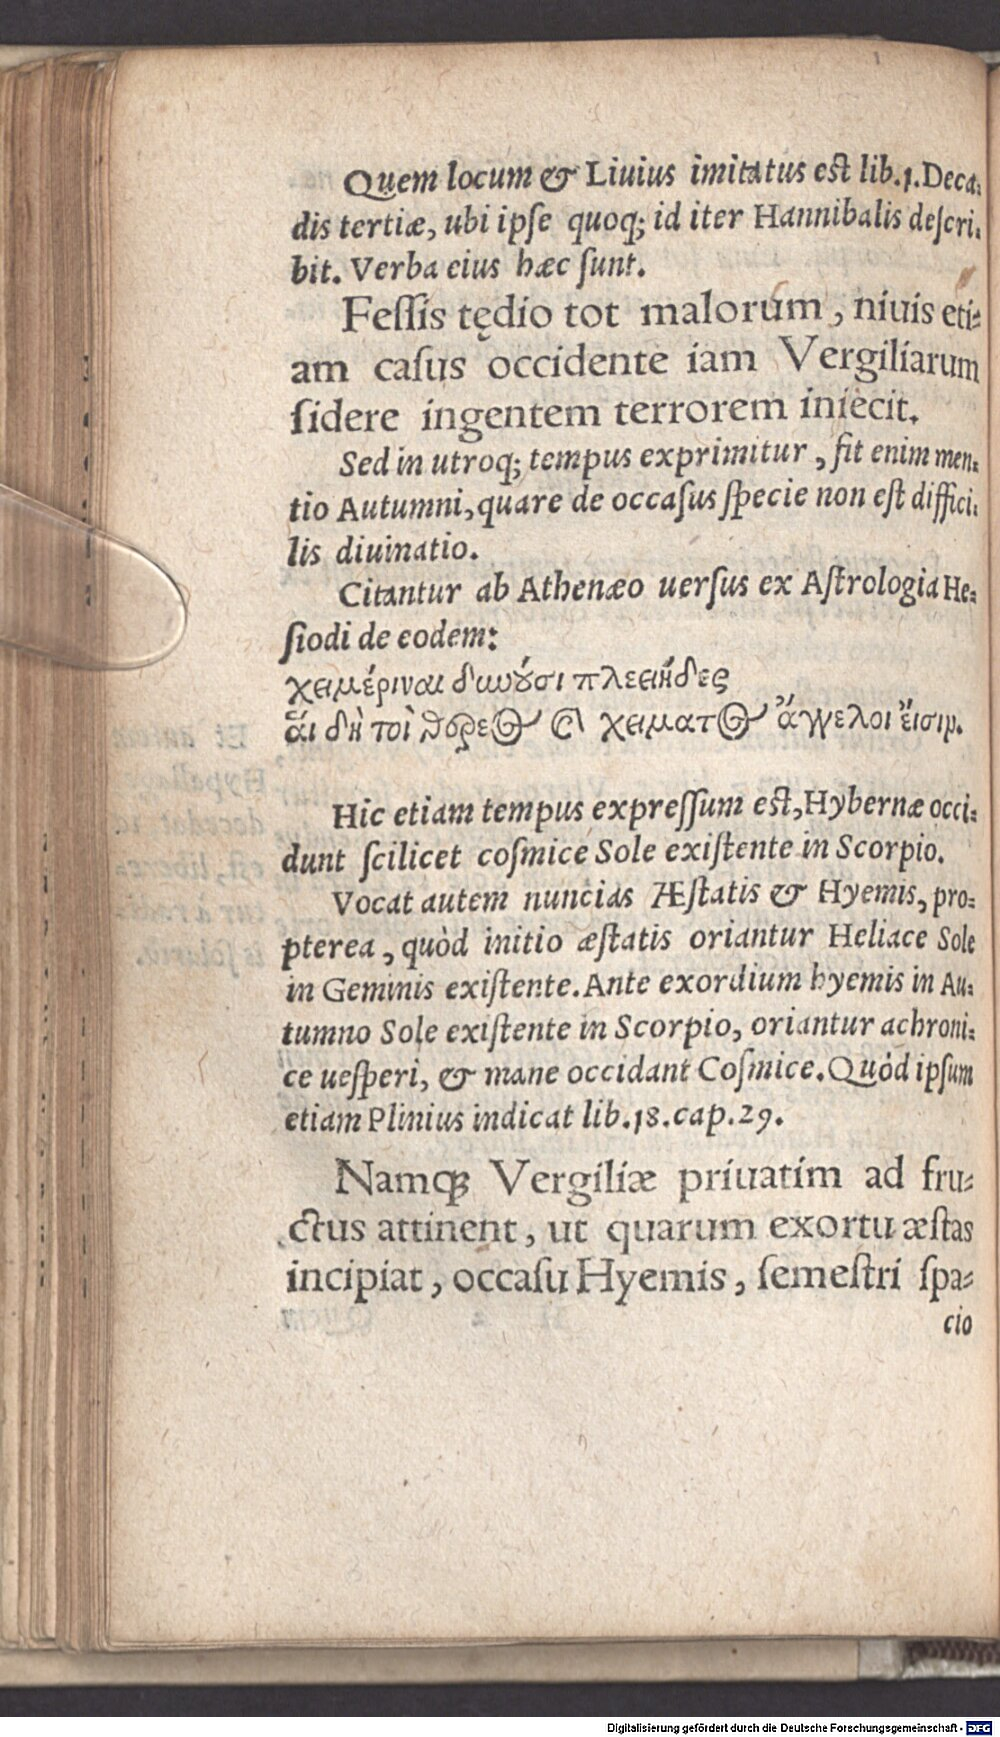 Quem locum & Liuius imitatus est lib.1.Deca-
dis tertiæ, ubi ipse quoq; id iter Hannibalis descri-
bit. Verba eius hæc sunt.
Fessis tędio tot malorum, niuis eti-
am casus occidente iam Vergiliarum
sidere ingentem terrorem iniecit.
Sed in utroq; tempus exprimitur, fit enim men-
tio Autumni, quare de occasus specie non est diffici-
lis diuinatio.
Citantur ab Athenæo uersus ex Astrologia He-
siodi de eodem:
χειμέριναι δυνουσι πλεειήδες
ἅι δὴ τοὶ θέρεος καὶ χειματος ἄγγελοι ἔισιν.
Hic etiam tempus expressum est, Hybernæ occi-
dunt scilicet cosmice Sole existente in Scorpio.
Vocat autem nuncias Æstatis & Hyemis, pro-
pterea, quòd initio æstatis oriantur Heliace Sole
in Geminis existente. Ante exordium hyemis in Au-
tumno Sole existente in Scorpio, oriantur achroni-
ce uesperi, & mane occidant Cosmice. Quòd ipsum
etiam Plinius indicat lib.18.cap.29.
Namq; Vergiliæ priuatim ad fru-
ctus attinent, ut quarum exortu æstas
incipiat, occasu Hyemis, semestri spa-
cio
Digitalisierung gefördert durch die Deutsche Forschungsgemeinschaft - DFG